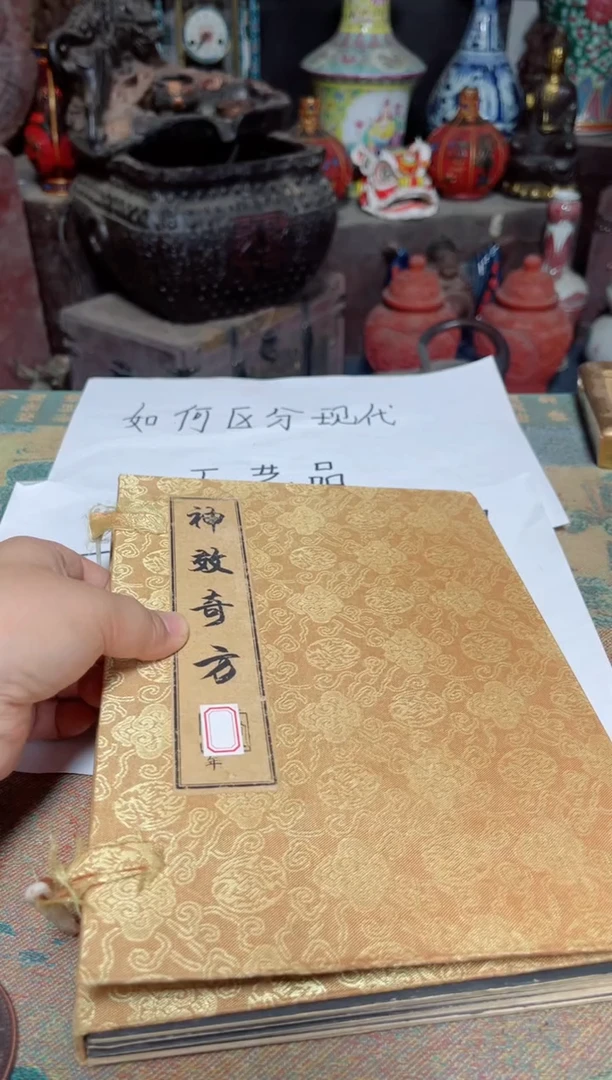 如何区分现代
工艺品
神效奇方
年